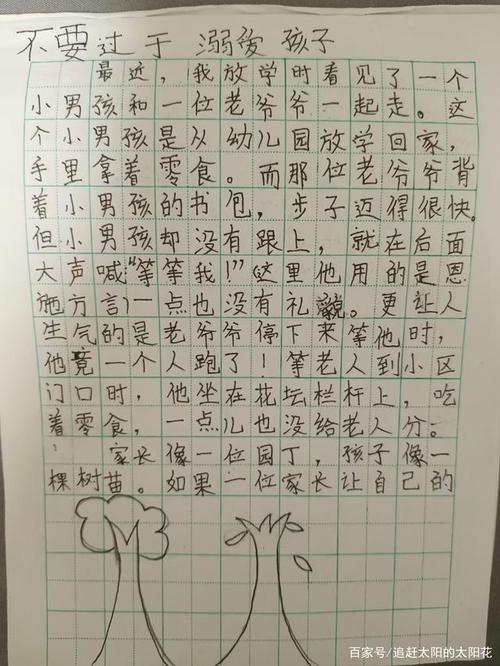 不要过于 溺爱 孩子
最近，我放学时看见了一个
小男孩和一位老爷爷一起走。这
个小男孩是从幼儿园放学回家，
手里拿着零食。而那位老爷爷背
着小男孩的书包，步子迈得很快。
但小男孩却没有跟上，就在后面
大声喊“等等我！”(这里他用的是恩
施方言)一点也没有礼貌。更让人
生气的是老爷爷停下来等他时，
他竟一个人跑了！等老人到小区
门口时，他坐在花坛栏杆上，吃
着零食，一点儿也没给老人分。
家长像一位园丁，孩子像一
棵树苗。如果一位家长让自己的
百家号/追赶太阳的太阳花